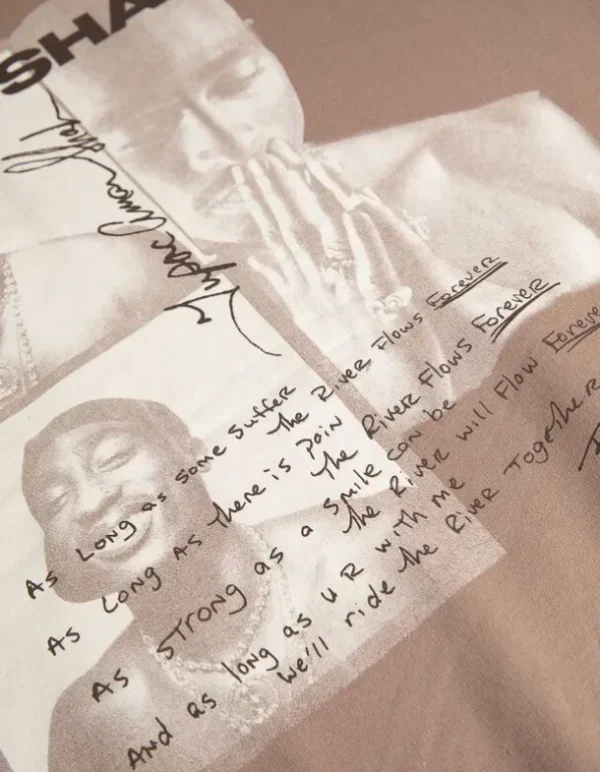 SHA
Tupac Amaru Shakur
As Long as some suffer
the River Flows Forever
As Long As there is pain
the River Flows Forever
As strong as a smile can be
the River will Flow Forever
And as long as u R with me
we'll ride the River Together